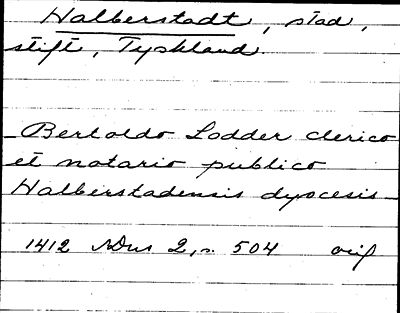 Halberstadt, stad,
stift, Tyskland.
Bertoldo Lodder clerico
et notario publico
Halberstadensis dyocesis
1412 NDns 2, s. 504 orig